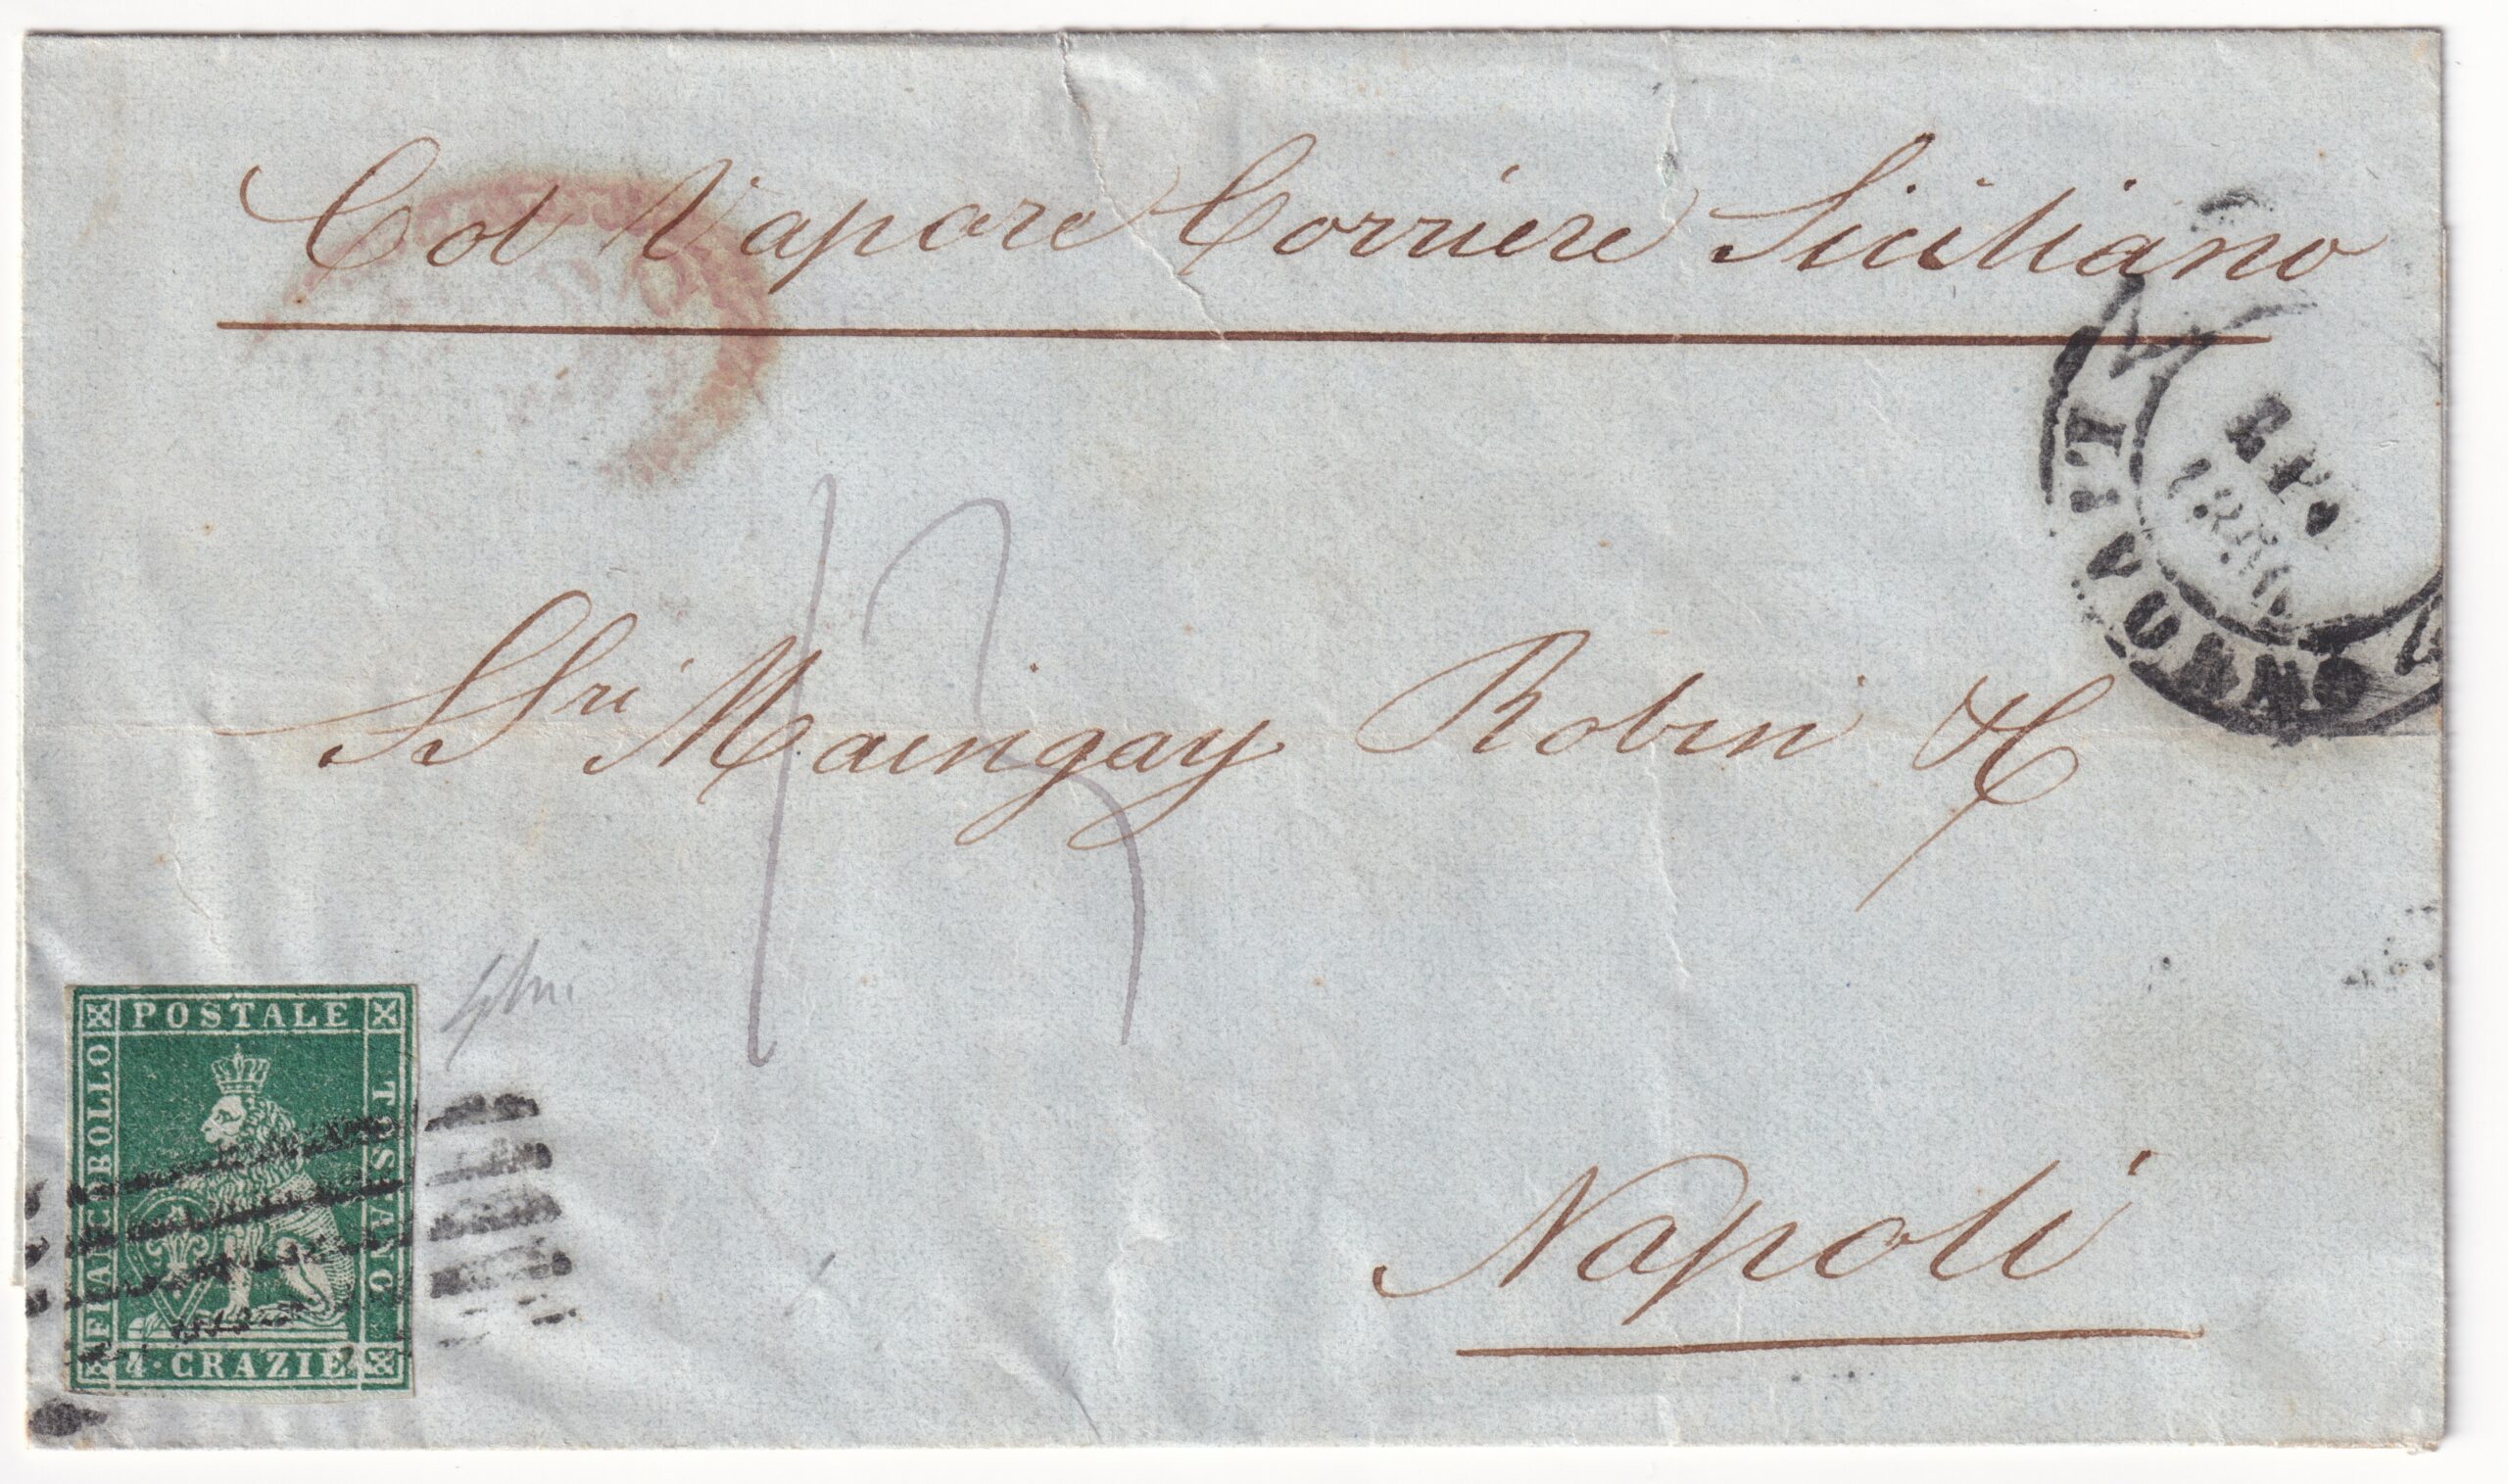 Col Vapore Corriere Siciliano
LIVORNO
13
SSri Maingay Robin &C
POSTALE
FRANCOBOLLO
TOSCANO
4·CRAZIE
Napoli